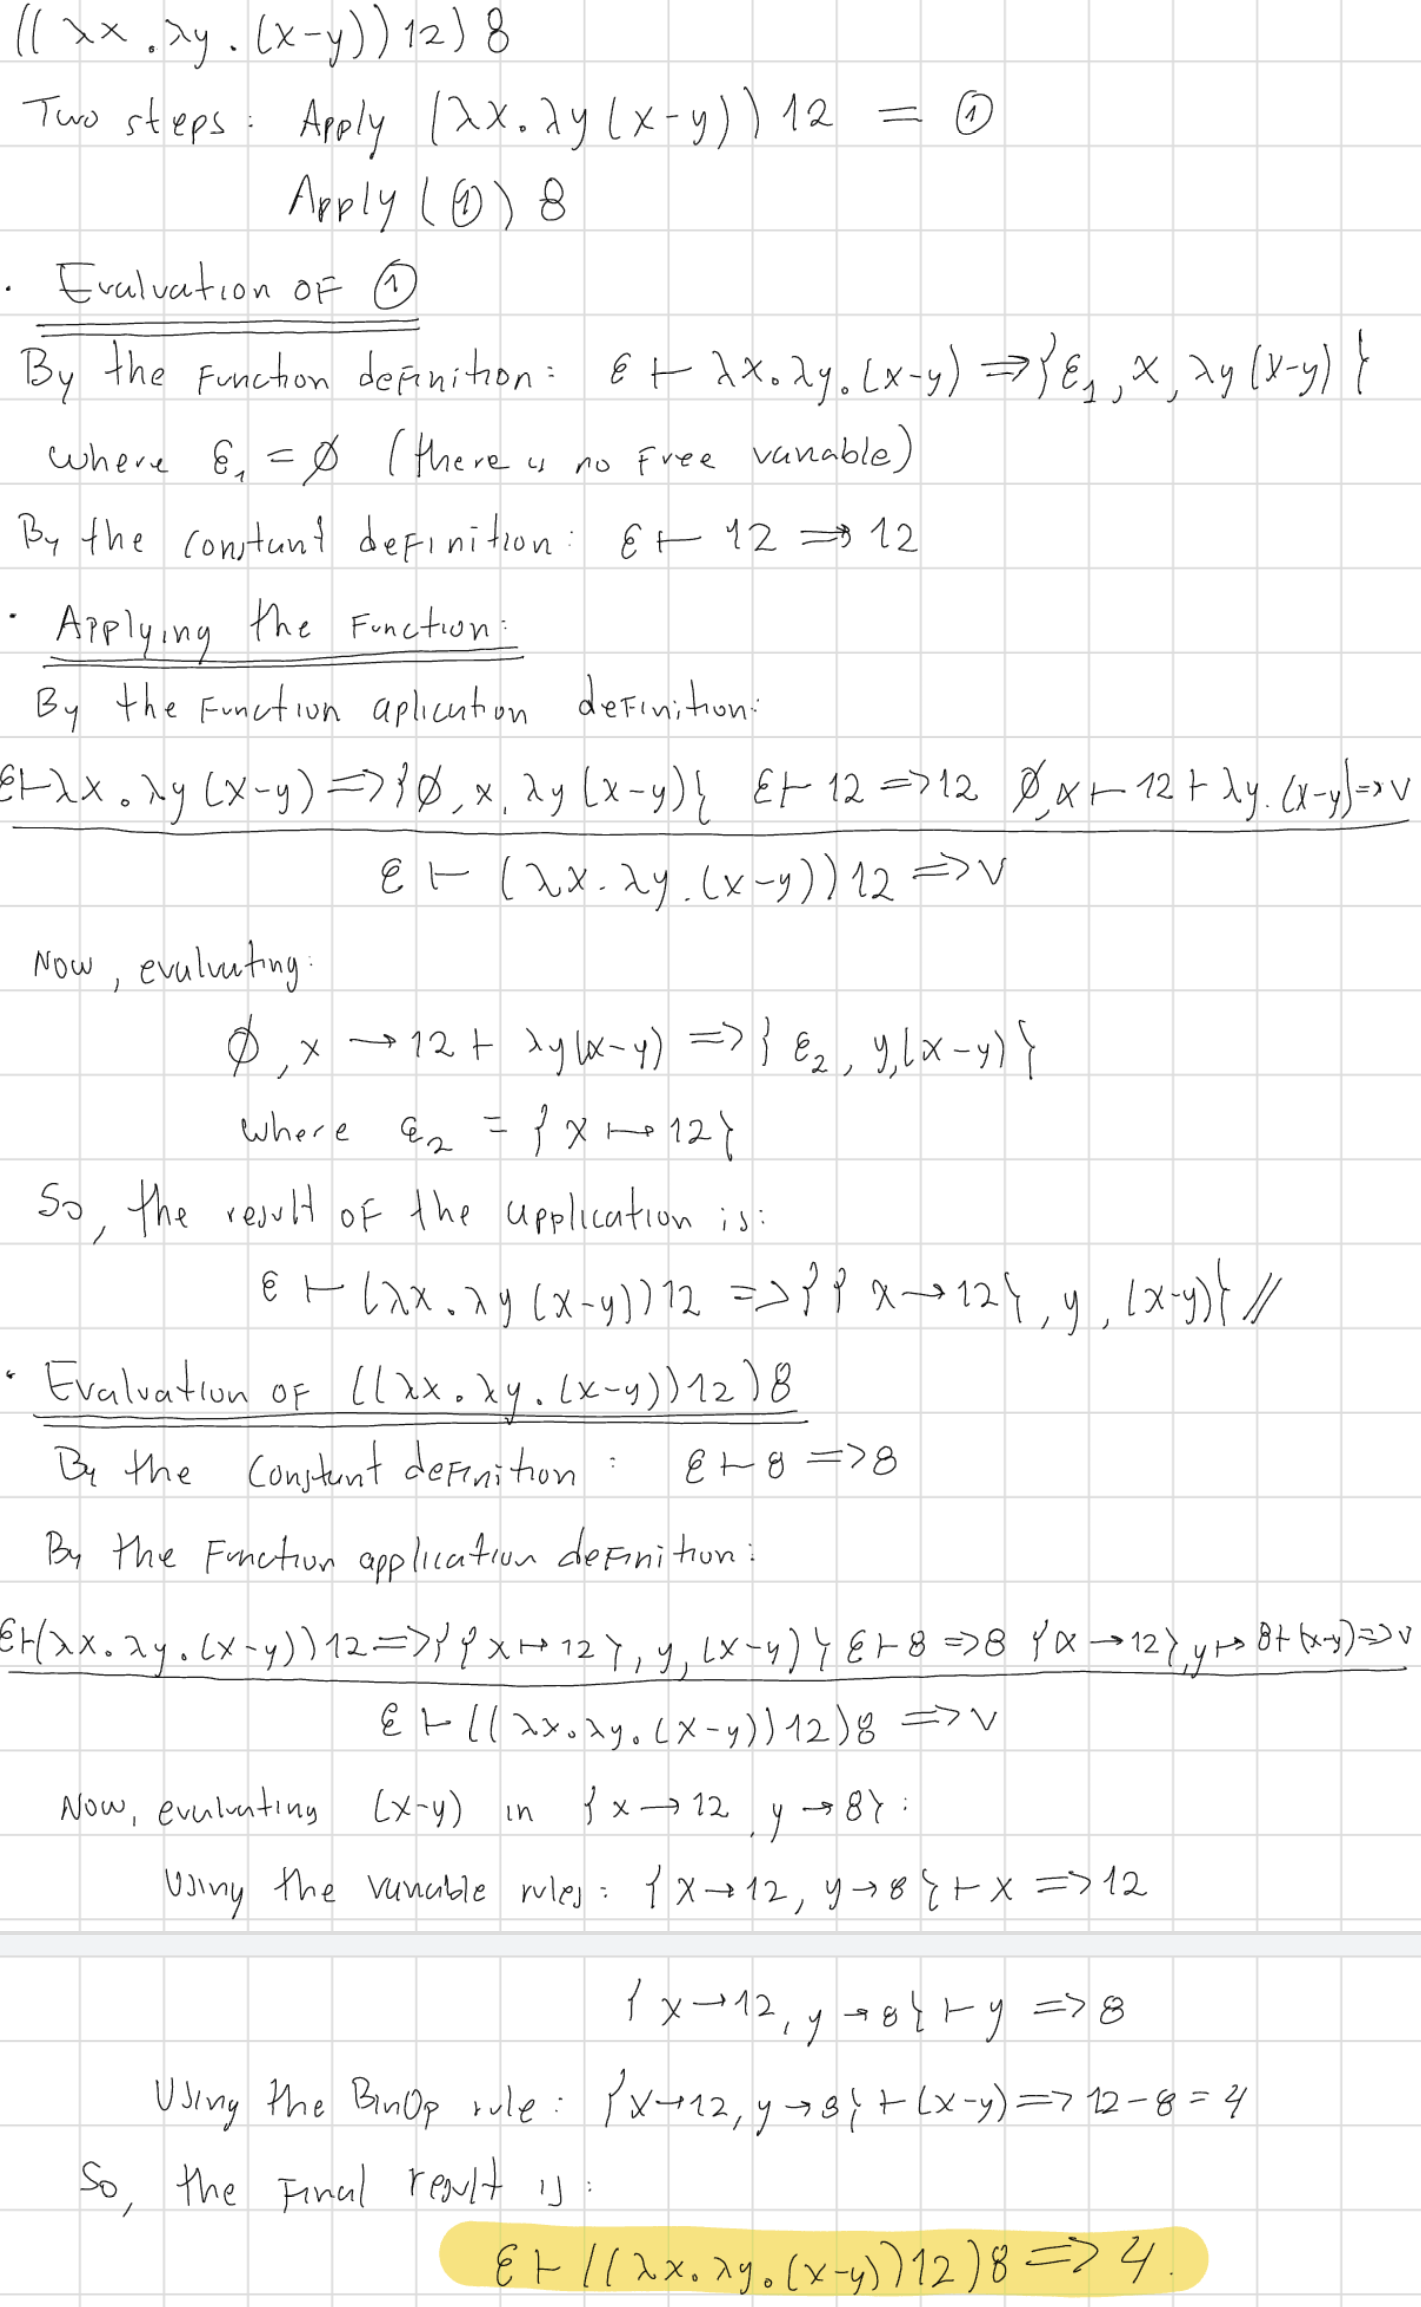 ((λx.λy.(x-y))12)8
Two steps: Apply (λx.λy(x-y))12 = ①
Apply (①) 8
· Evaluation of ①
By the function definition: ε ⊢ λx.λy.(x-y) => {ε₁, x, λy(x-y)}
where ε₁ = ∅ (there is no free variable)
By the constant definition: ε ⊢ 12 => 12
· Applying the Function:
By the function aplication definition:
ε⊢λx.λy(x-y) => {∅, x, λy(x-y)} ε⊢12 => 12 ∅,x ⊢ 12 ⊢ λy.(x-y) => v
ε ⊢ (λx.λy.(x-y))12 => v
Now, evaluating:
∅, x → 12 ⊢ λy(x-y) => {ε₂, y,(x-y)}
where ε₂ = {x ↦ 12}
So, the result of the application is:
ε ⊢ (λx.λy(x-y))12 => {{x → 12}, y, (x-y)} //
· Evaluation of ((λx.λy.(x-y))12)8
By the constant definition: ε ⊢ 8 => 8
By the function application definition:
ε⊢(λx.λy.(x-y))12 => {{x ↦ 12}, y, (x-y)} ε ⊢ 8 => 8 {x → 12}, y ↦ 8 ⊢ (x-y) => v
ε ⊢ ((λx.λy.(x-y))12)8 => v
Now, evaluating (x-y) in {x → 12, y → 8}:
Using the variable rules: {x → 12, y → 8} ⊢ x => 12
{x → 12, y → 8} ⊢ y => 8
Using the BinOp rule: {x → 12, y → 8} ⊢ (x-y) => 12-8 = 4
So, the final result is:
ε ⊢ ((λx.λy.(x-y))12)8 => 4.